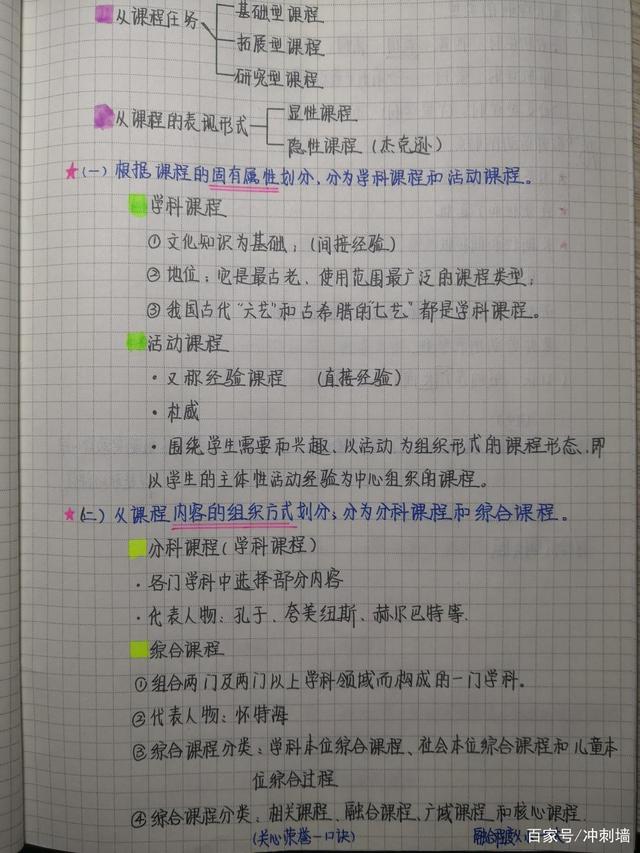 基础型课程
从课程任务
拓展型课程
研究型课程
显性课程
从课程的表现形式
隐性课程(杰克逊)
★(一)根据课程的固有属性划分,分为学科课程和活动课程。
学科课程
①文化知识为基础;(间接经验)
②地位:它是最古老、使用范围最广泛的课程类型;
③我国古代"六艺"和古希腊的"七艺"都是学科课程。
活动课程
·又称经验课程 (直接经验)
·杜威
·围绕学生需要和兴趣、以活动为组织形式的课程形态,即
以学生的主体性活动经验为中心组织的课程。
★(二)从课程内容的组织方式划分;分为分科课程和综合课程。
分科课程(学科课程)
·各门学科中选择部分内容
·代表人物:孔子、夸美纽斯、赫尔巴特等.
综合课程
①组合两门及两门以上学科领域而构成的一门学科。
②代表人物:怀特海
③综合课程分类:学科本位综合课程、社会本位综合课程和儿童本
位综合过程
④综合课程分类:相关课程、融合课程、广域课程和核心课程.
(关心荣誉一口诀)
百家号/冲刺墙